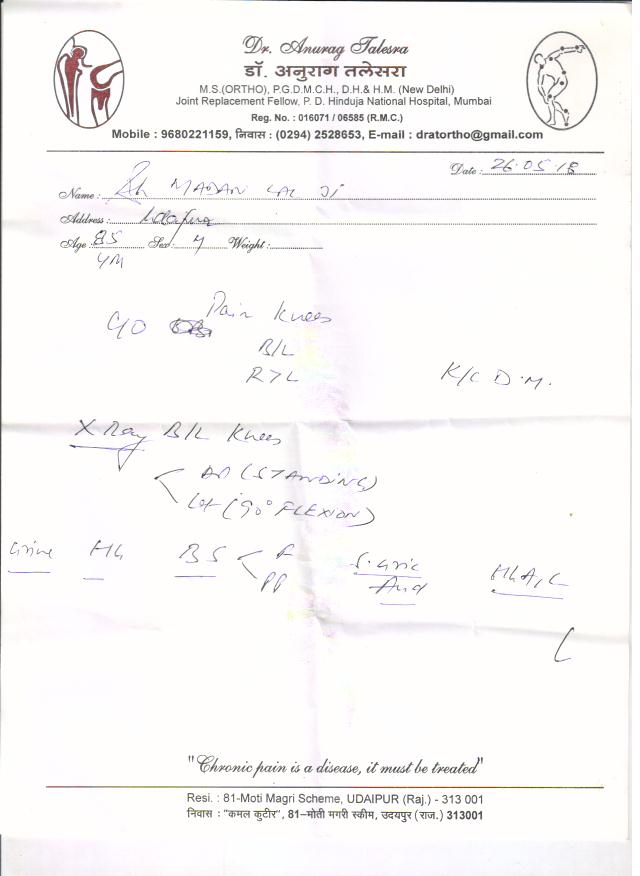 Dr. Anurag Talesra
डॉ. अनुराग तलेसरा
M.S.(ORTHO), P.G.D.M.C.H., D.H.& H.M. (New Delhi)
Joint Replacement Fellow, P. D. Hinduja National Hospital, Mumbai
Reg. No. : 016071 / 06585 (R.M.C.)
Mobile : 9680221159, निवास : (0294) 2528653, E-mail : dratortho@gmail.com
Date : 26.05.18
Name : Sh MADAN LAL JI
Address : Udaipur
Age 85 Sex : M Weight :
YM
C/O Pain Knees
B/L
R>L
K/C D.M.
X Ray B/L Knees
AP (STANDING)
Lat (90° FLEXION)
Urine Hb BS F S. Uric HbA1C
PP Acid
"Chronic pain is a disease, it must be treated"
Resi. : 81-Moti Magri Scheme, UDAIPUR (Raj.) - 313 001
निवास : "कमल कुटीर", 81–मोती मगरी स्कीम, उदयपुर (राज.) 313001